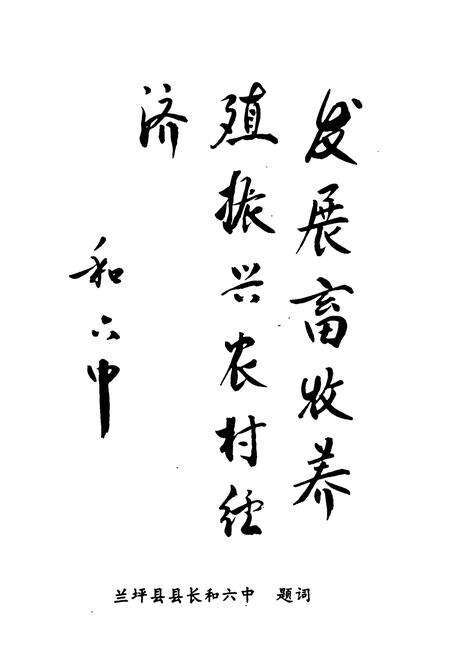 发展畜牧养
殖振兴农村经
济
和六中
兰坪县县长和六中 题词